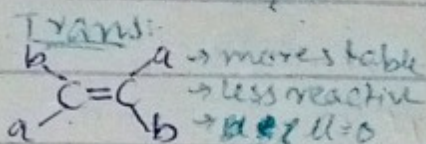 Trans:
b a → more stable
C=C → less reactive
a b → μ=0